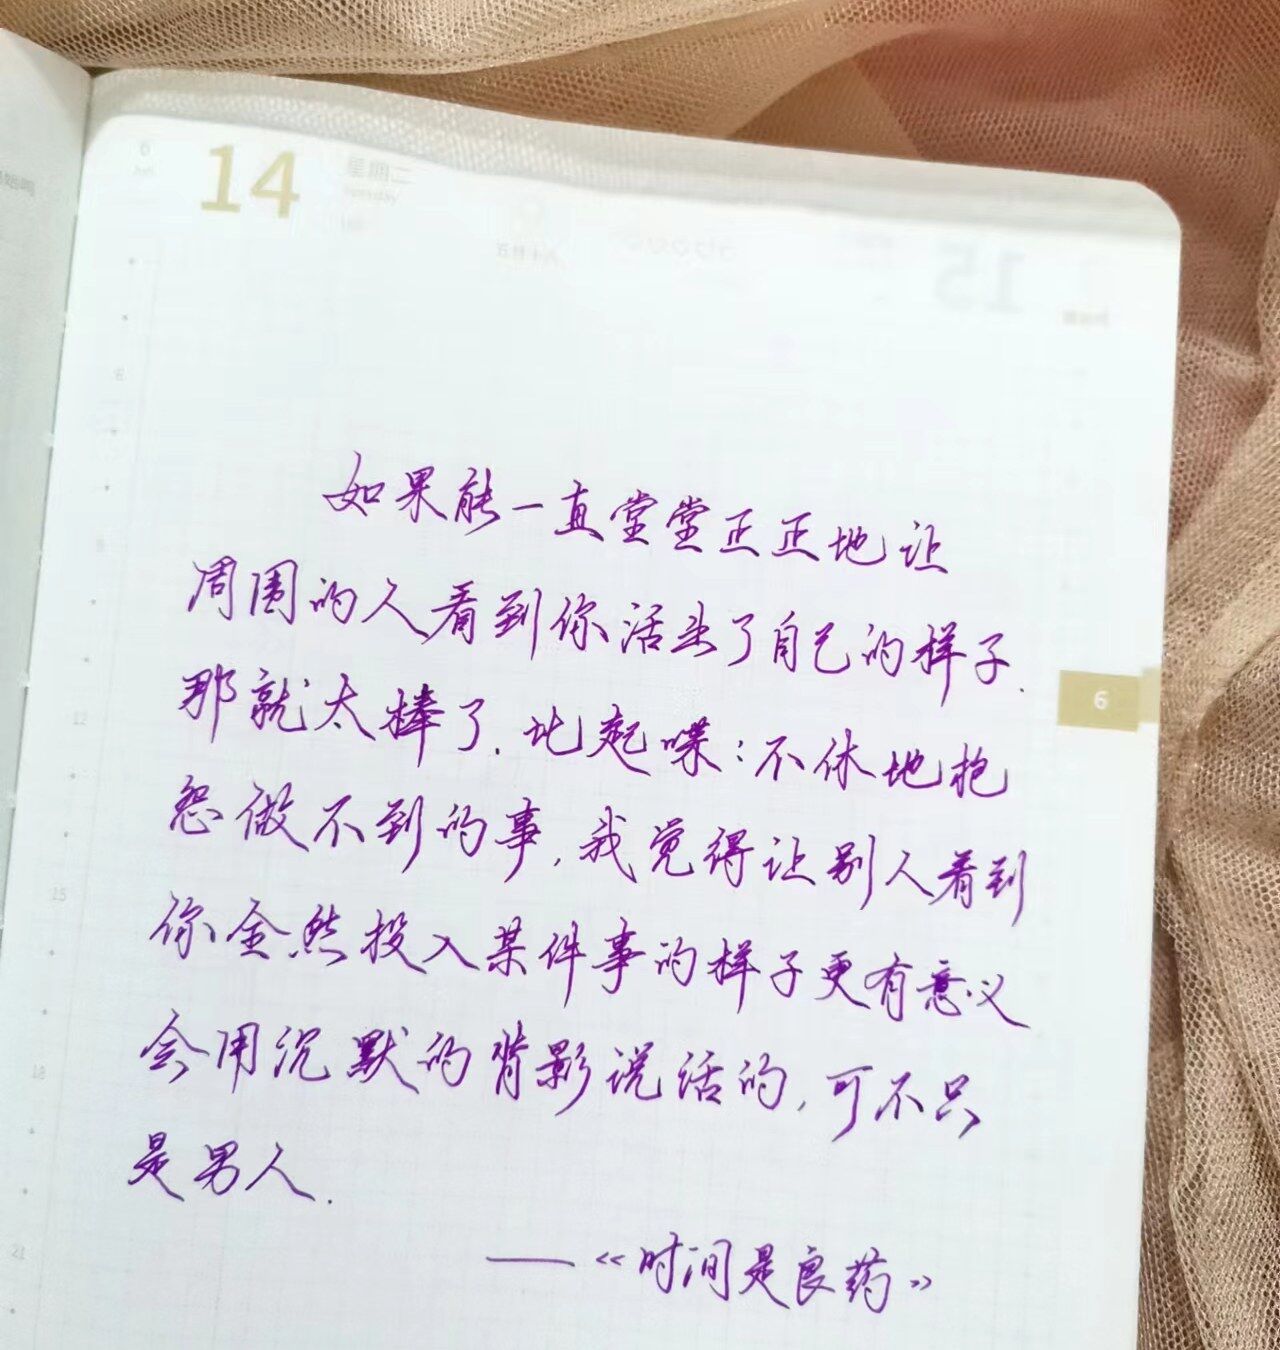 6
14
星期二
Tuesday
15
如果能一直堂堂正正地让
周围的人看到你活出了自己的样子.
那就太棒了.比起喋:不休地抱
怨做不到的事,我觉得让别人看到
你全然投入某件事的样子更有意义
会用沉默的背影说话的,可不只
是男人.
——《时间是良药》
6
9
12
15
18
21